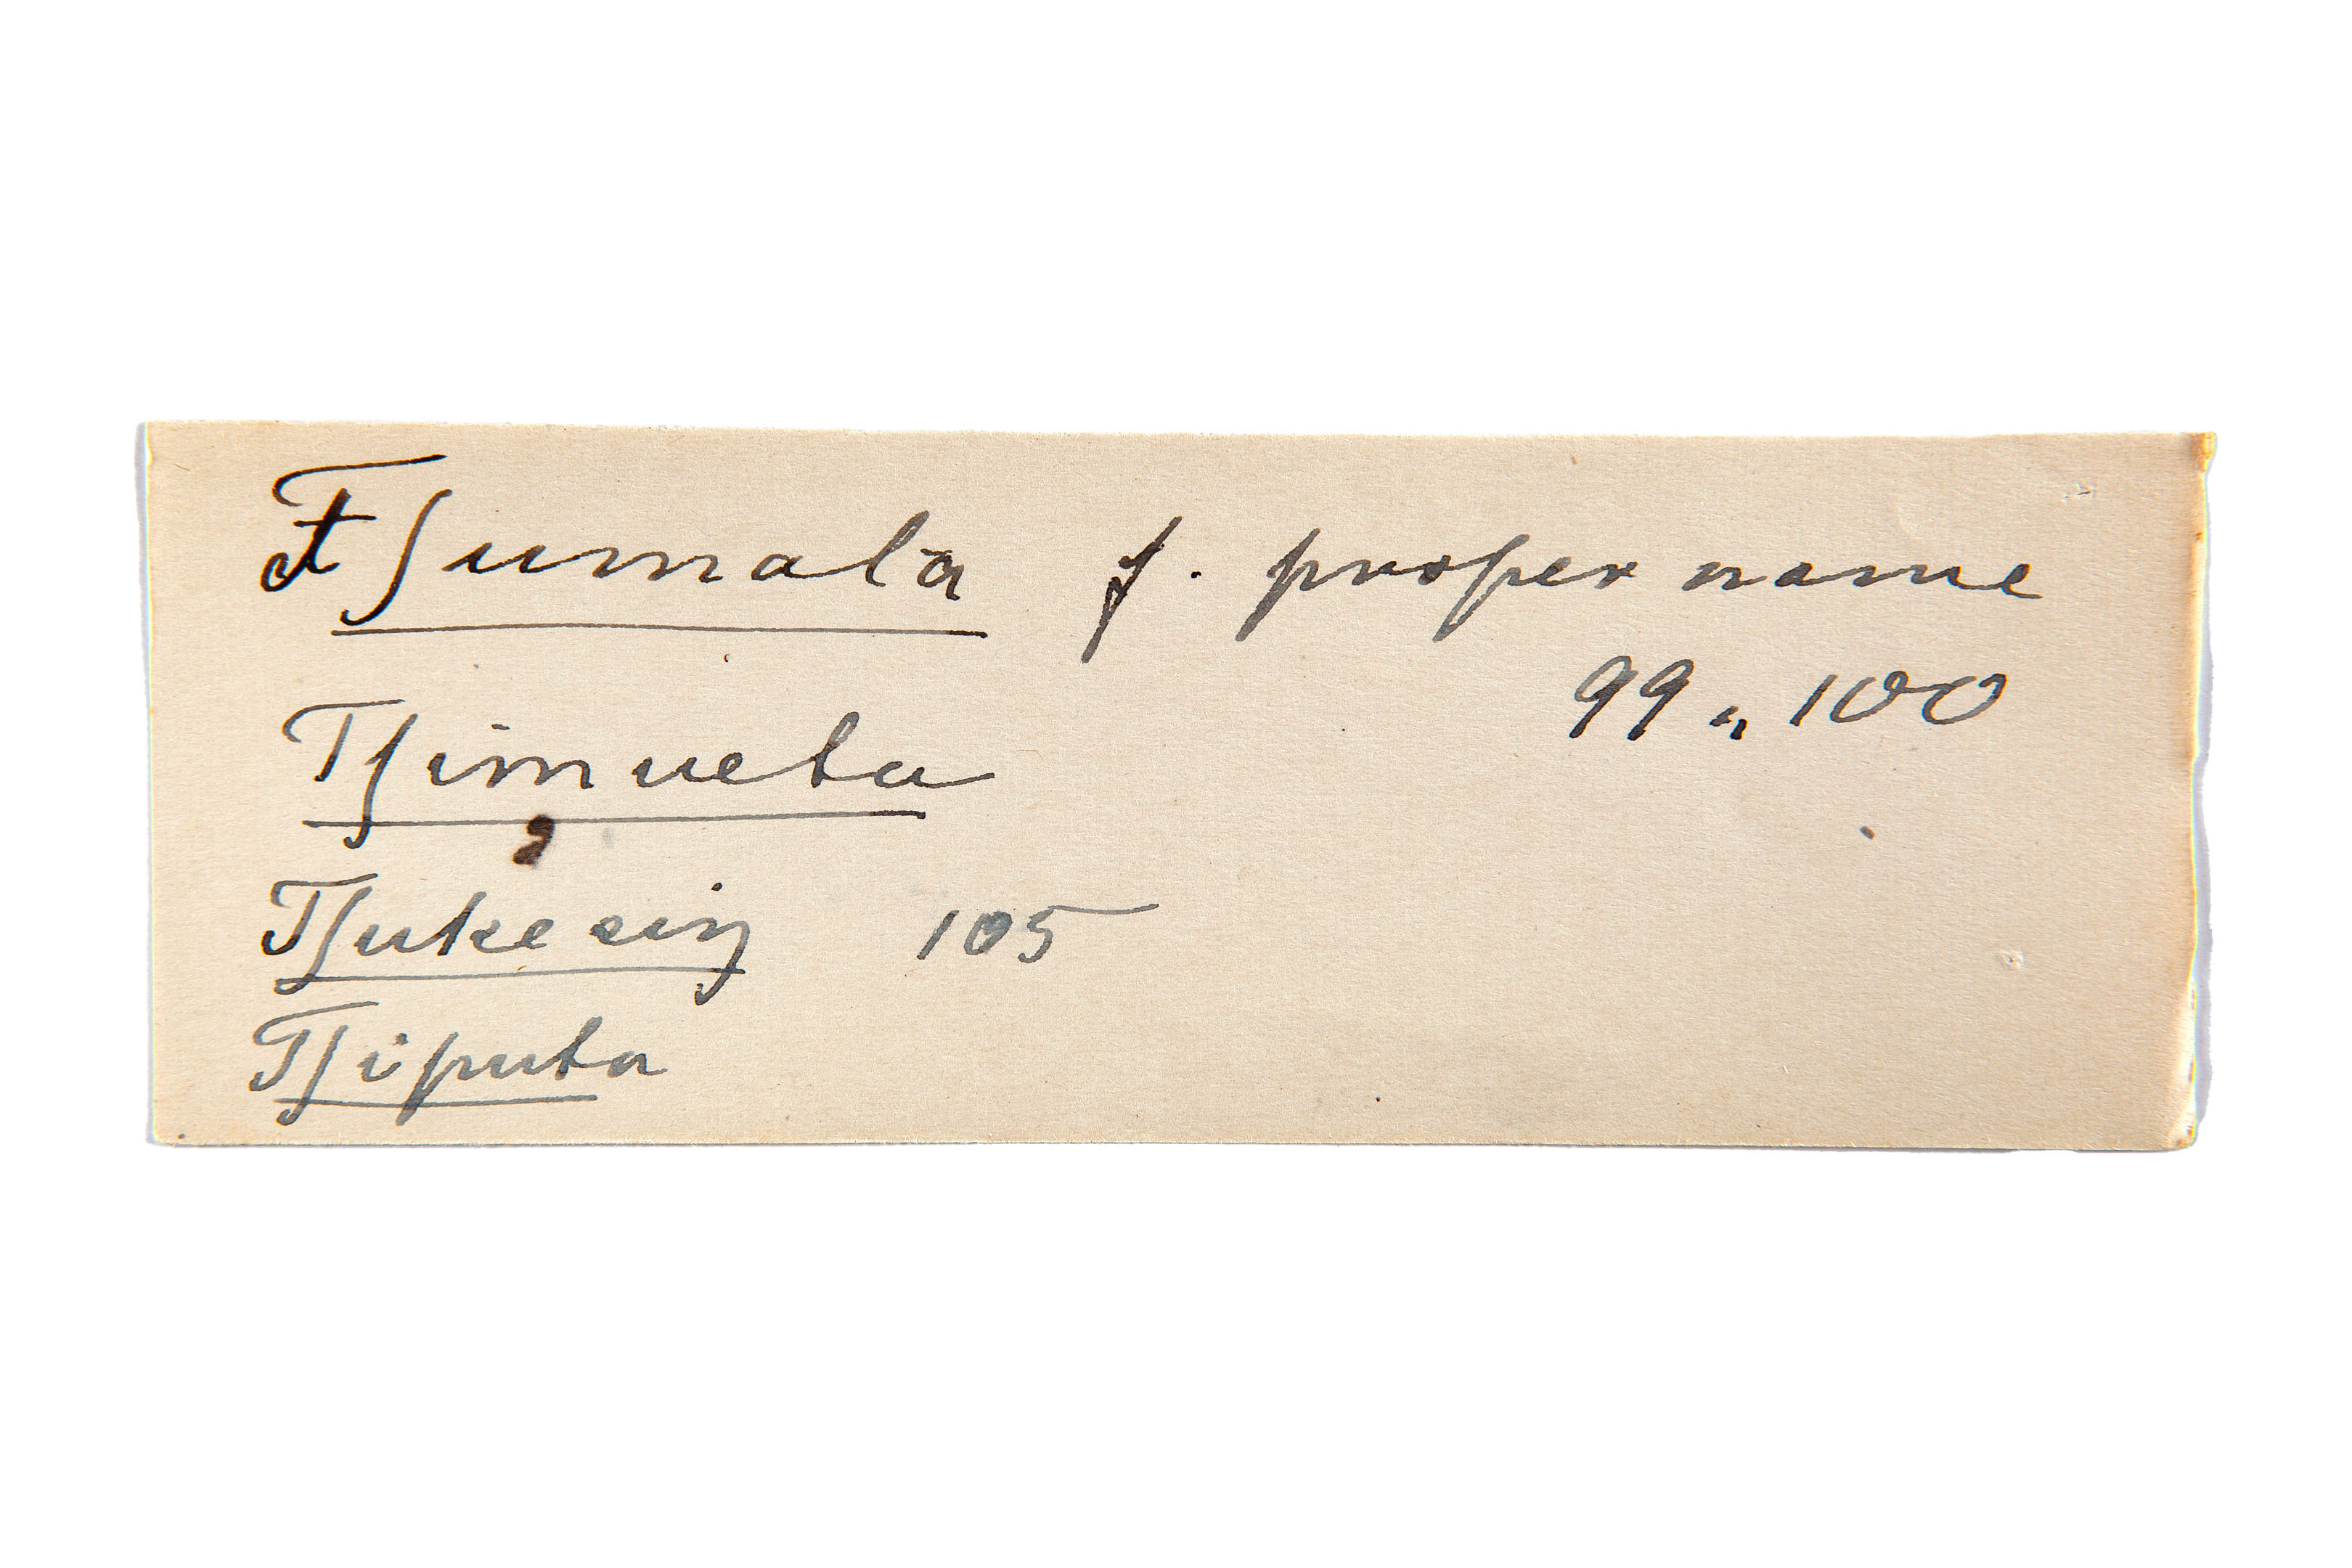 Tʃumala f. proper name
99 „ 100
Tʃimueta
Tʃukeeiŋ 105
Tʃiputa